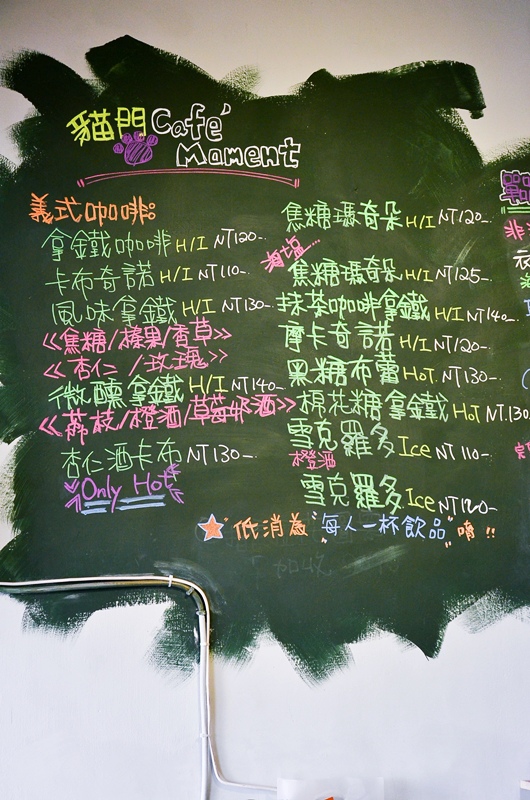 貓門 Café
Moment
義式咖啡:
拿鐵咖啡 H/I NT120-.
卡布奇諾 H/I NT110-.
風味拿鐵 H/I NT130-.
《焦糖/榛果/香草》
《杏仁/玫瑰》
微醺拿鐵 H/I NT140-.
《荔枝/橙酒/草莓奶酒》
杏仁酒卡布 NT130-.
Only Hot
焦糖瑪奇朵 H/I NT120-.
海塩...
焦糖瑪奇朵 H/I NT125-.
抹茶咖啡拿鐵 H/I NT140-.
摩卡奇諾 H/I NT120-.
黑糖布蕾 HoT. NT130-.
棉花糖拿鐵 HoT NT.130
雪克羅多 Ice NT110-.
橙酒
雪克羅多 Ice NT120-
☆低消為"每人一杯飲品"唷!!